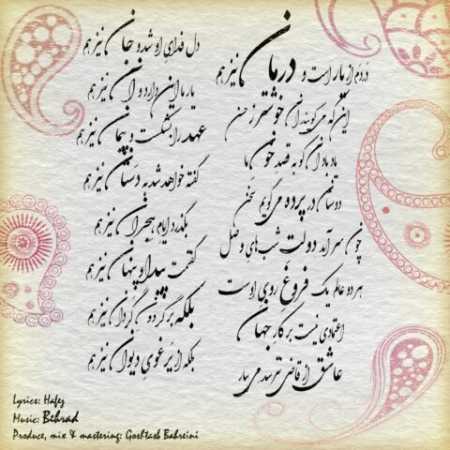 دردم از یار است و درمان نیز هم
دل فدای او شد و جان نیز هم
این که می گویند آن خوشتر ز حسن
یار ما این دارد و آن نیز هم
یاد باد آن کو به قصد خون ما
عهد را بشکست و پیمان نیز هم
دوستان در پرده می گویم سخن
گفته خواهد شد به دستان نیز هم
چون سر آمد دولت شب های وصل
بگذرد ایام هجران نیز هم
هر دو عالم یک فروغ روی اوست
گفتمت پیدا و پنهان نیز هم
اعتمادی نیست بر کار جهان
بلکه بر گردون گردان نیز هم
عاشق از قاضی نترسد می بیار
بلکه از یرغوی دیوان نیز هم
Lyrics: Hafez
Music: Behrad
Produce, mix & mastering: Goshtasb Bahreini